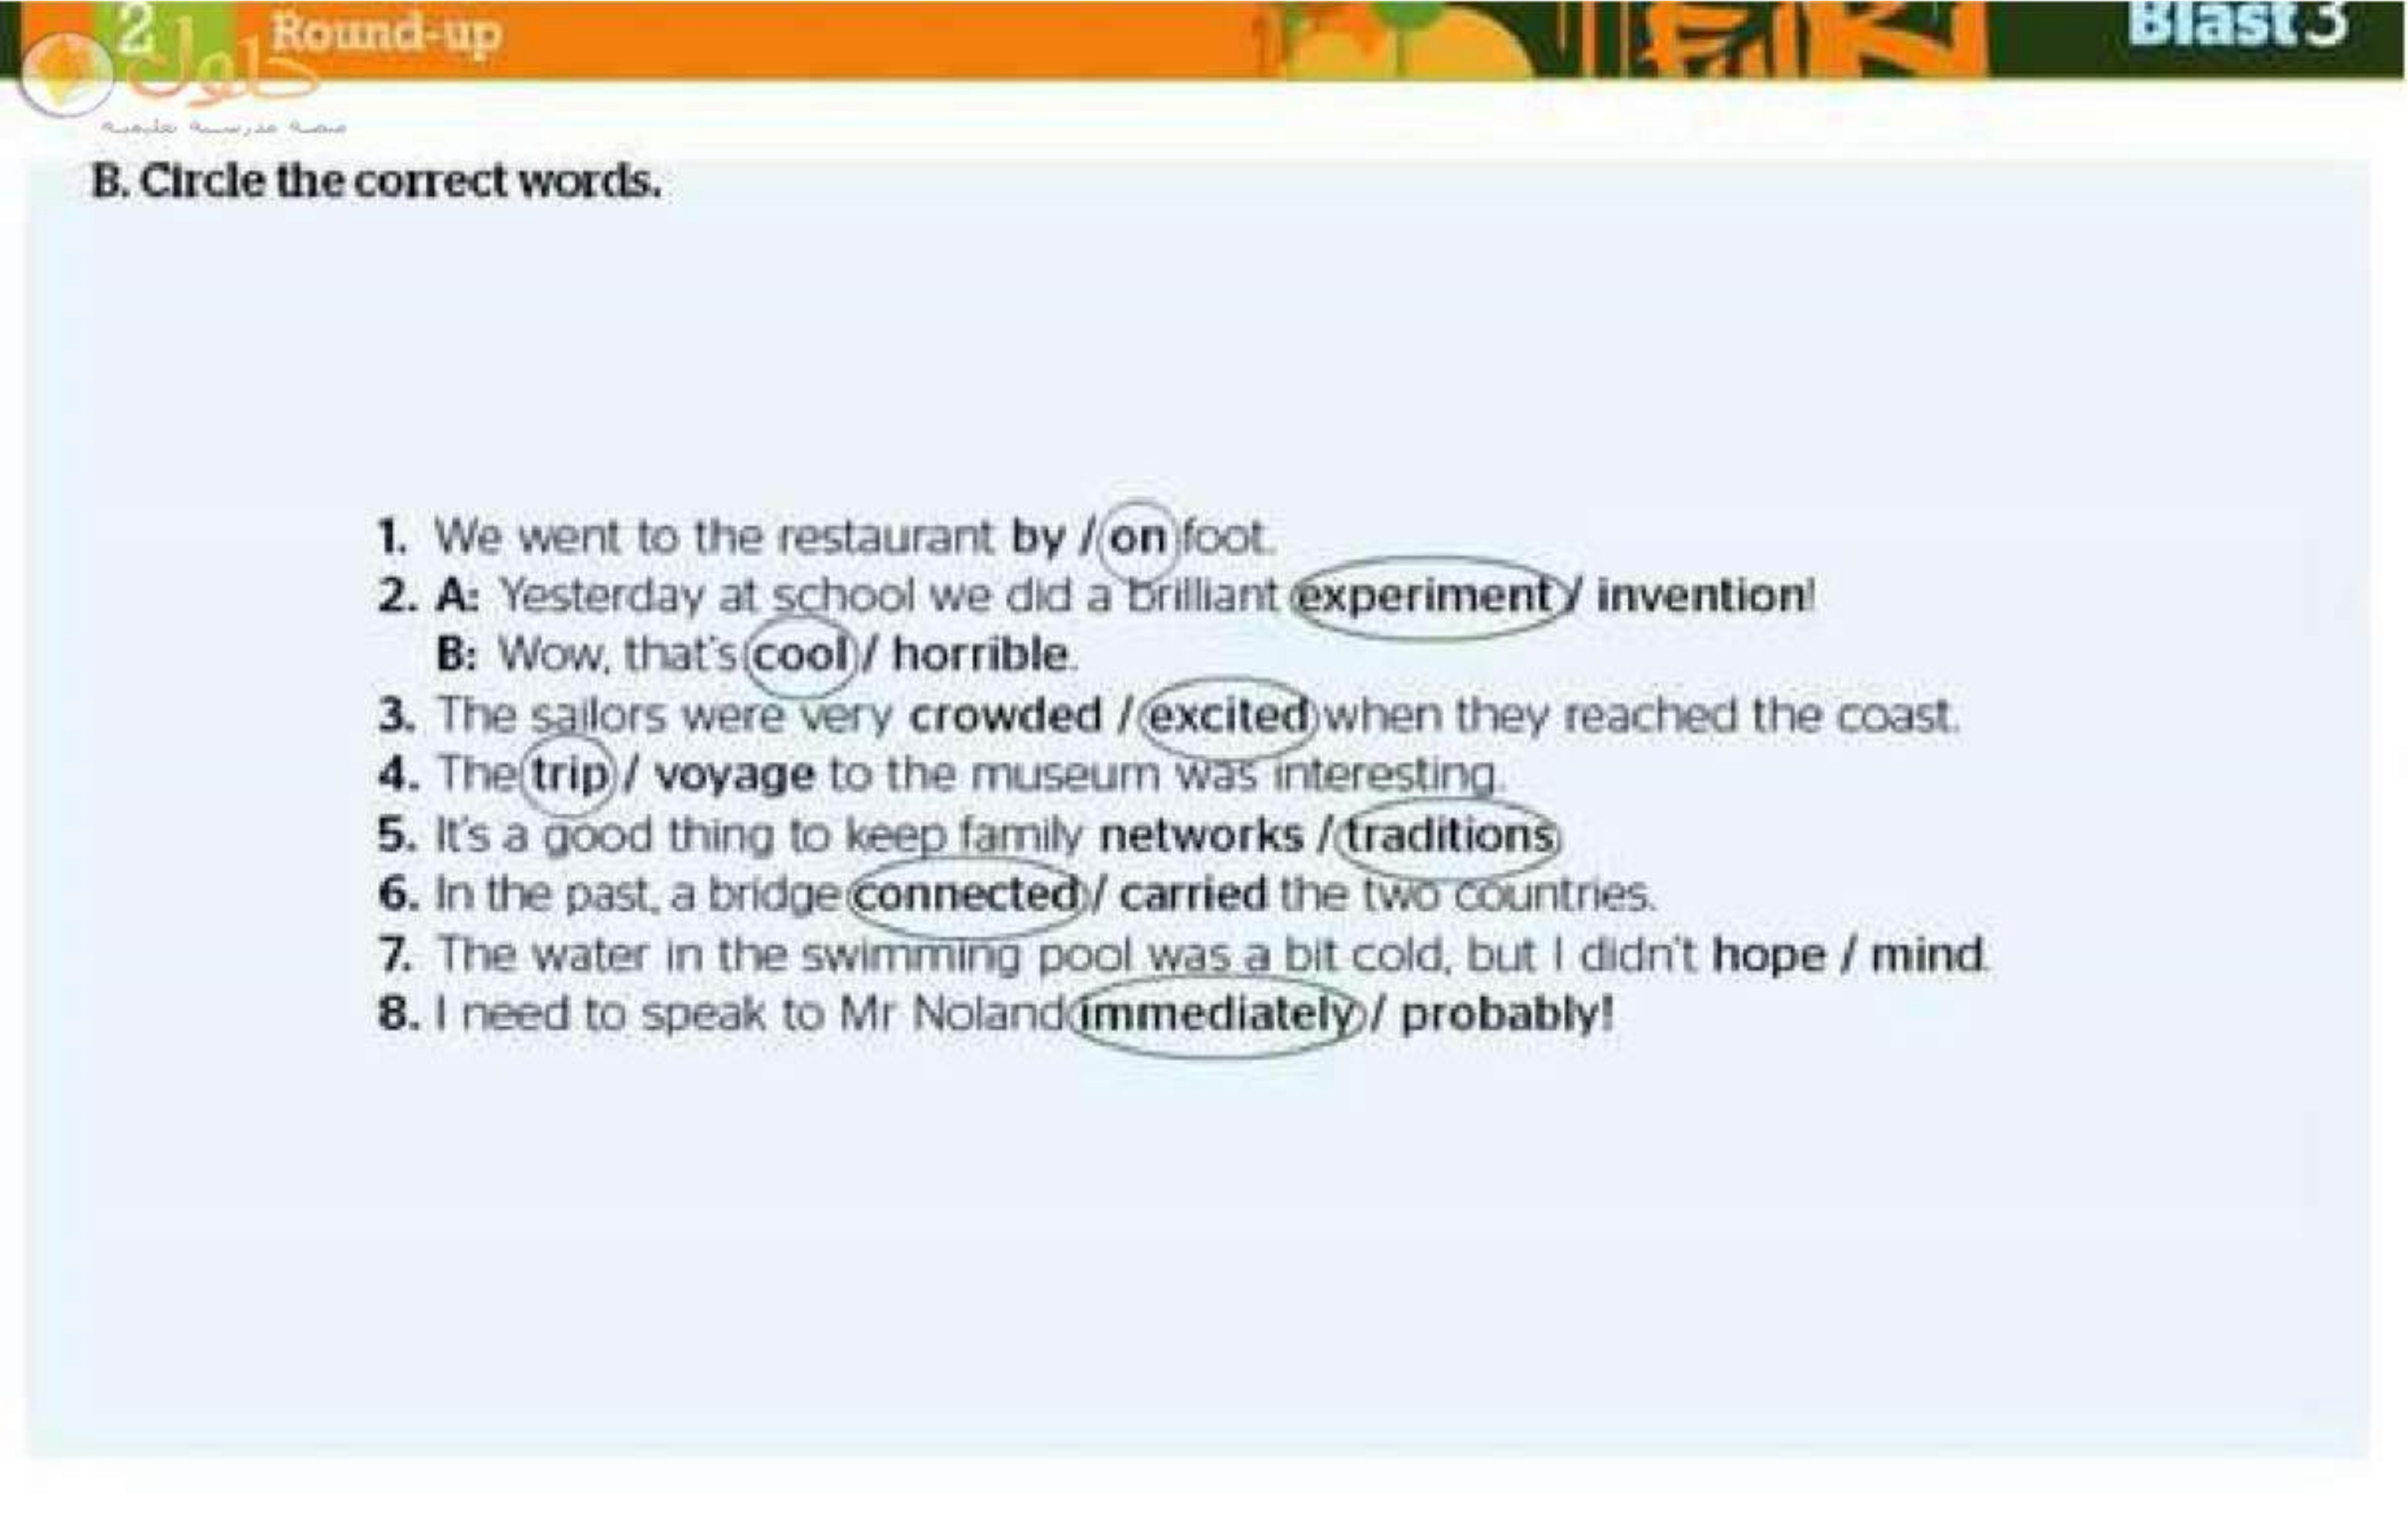 2 Round-up
Blast 3
حلول
منصة مدرسية تعليمية
B. Circle the correct words.
1. We went to the restaurant by / on foot.
2. A: Yesterday at school we did a brilliant experiment / invention!
B: Wow, that's cool / horrible.
3. The sailors were very crowded / excited when they reached the coast.
4. The trip / voyage to the museum was interesting.
5. It's a good thing to keep family networks / traditions
6. In the past, a bridge connected / carried the two countries.
7. The water in the swimming pool was a bit cold, but I didn't hope / mind.
8. I need to speak to Mr Noland immediately / probably!